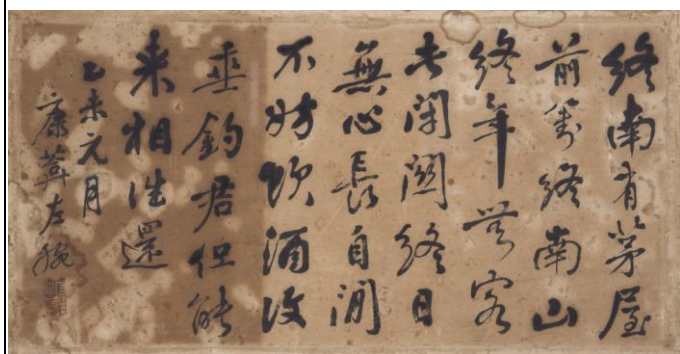 終南有茅屋
前對終南山
終年無客
長閉關終日
無心長自閒
不妨飲酒復
垂釣君但能
来相往還
乙未元月
康左腕